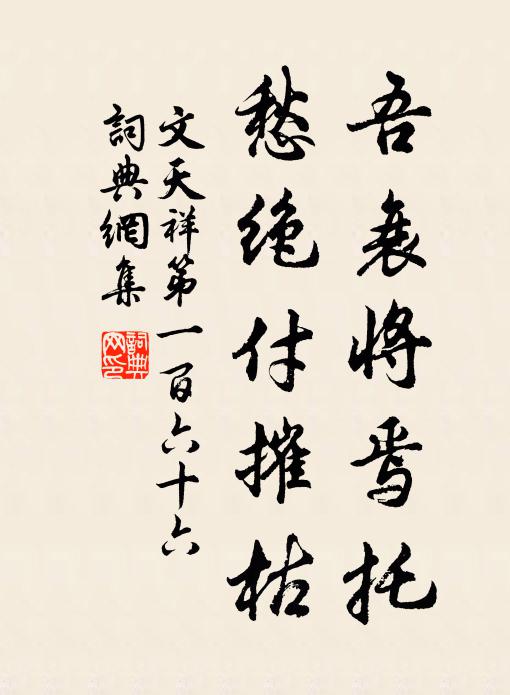 吾衰將焉托
愁绝付摧枯
文天祥第一百六十六
詞典網集
詞典
网印